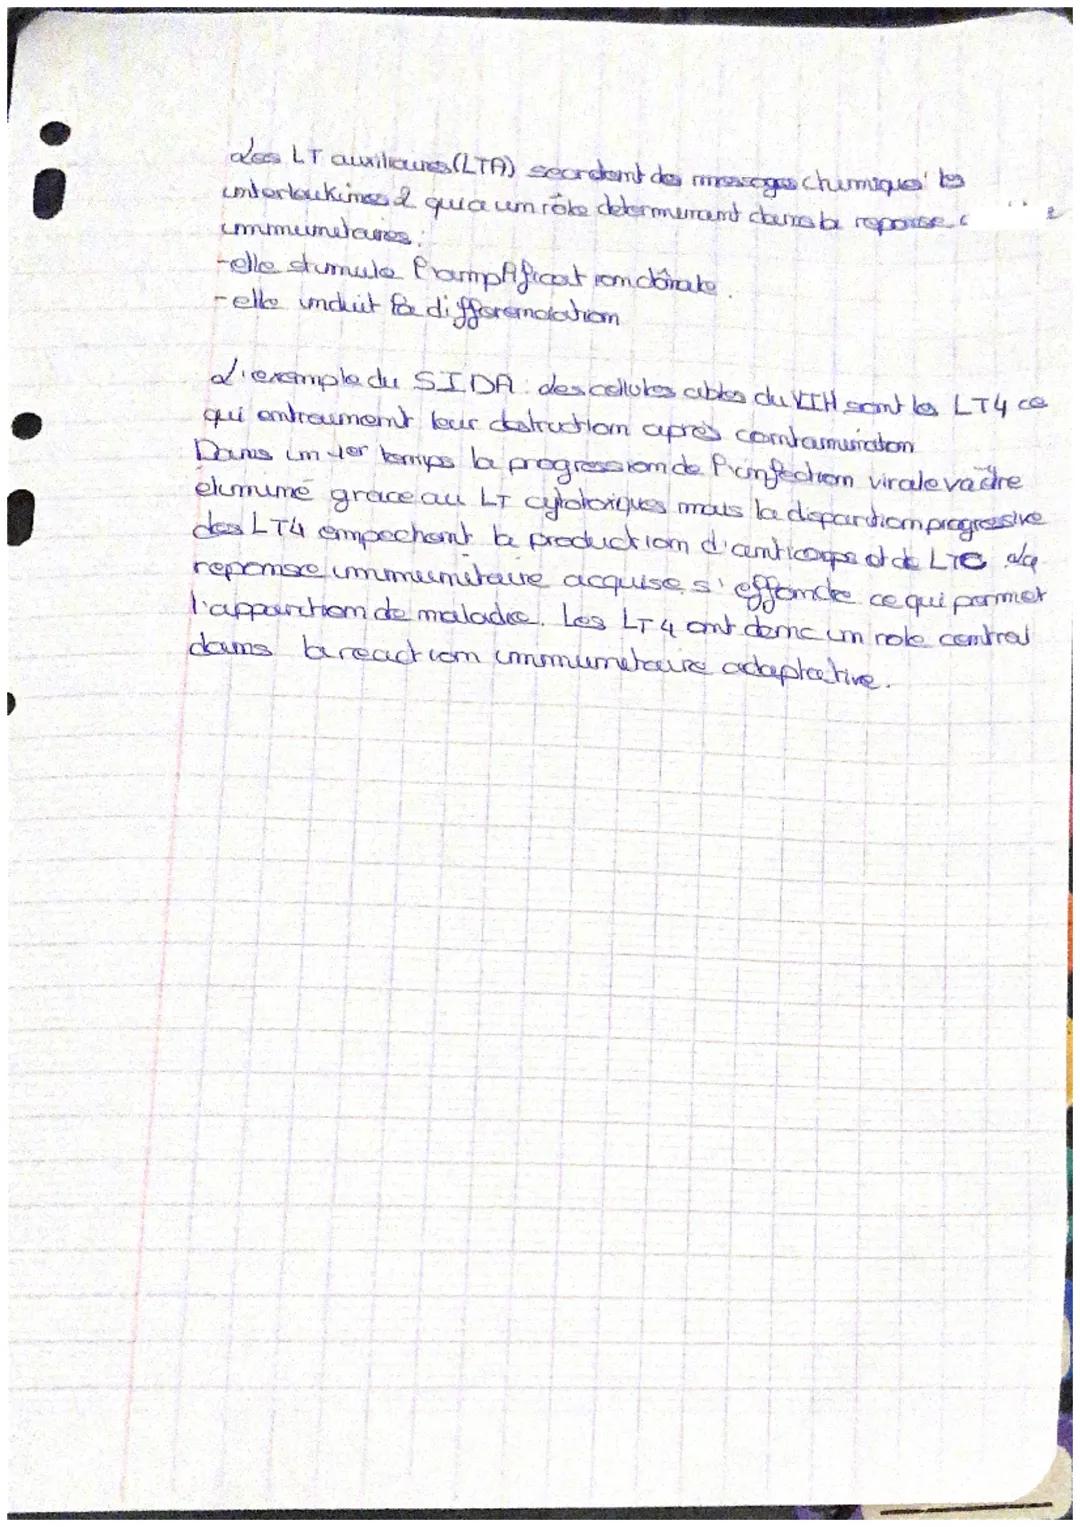 Les LT auxiliaires (LTA) secretent des messages chimiques les
interleukines 2 qui a un rôle determinant dans la reponse
immunitaires :
- elle stimule l'amplification clônale.
- elle induit la differenciation
L'exemple du SIDA : des cellules cibles du VIH sont les LT4 ce
qui entrainent leur destruction après contamination
Dans un 1er temps la progression de l'infection virale va être
éliminé grace au LT cytotoxiques mais la disparition progressive
des LT4 empechent la production d'anticorps et de LTC. La
reponse immunitaire acquise s'effondre ce qui permet
l'apparition de maladie. Les LT4 ont donc un role central
dans la reaction immunitaire adaptative.